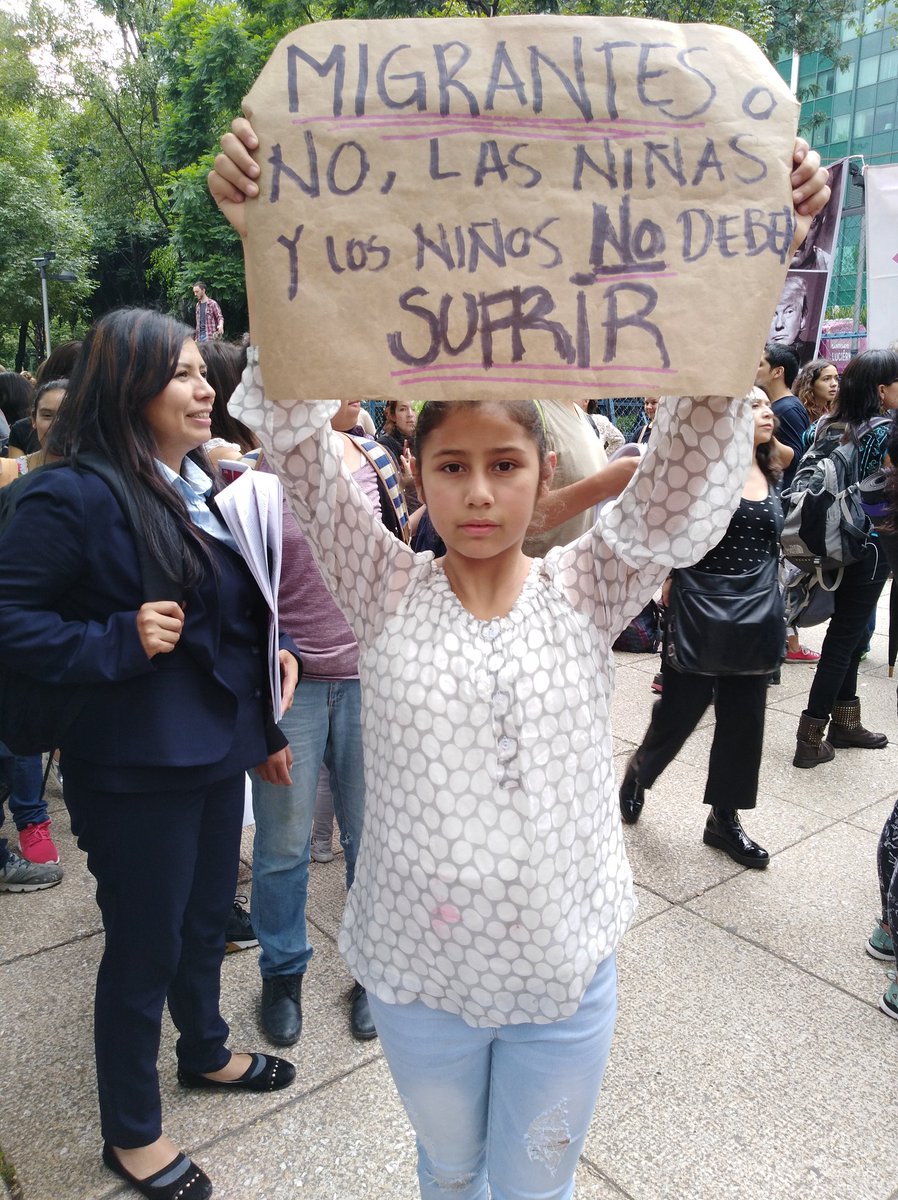 MIGRANTES o
NO, LAS NIÑAS
Y LOS NIÑOS NO DEBEN
SUFRIR
LUCIÉR